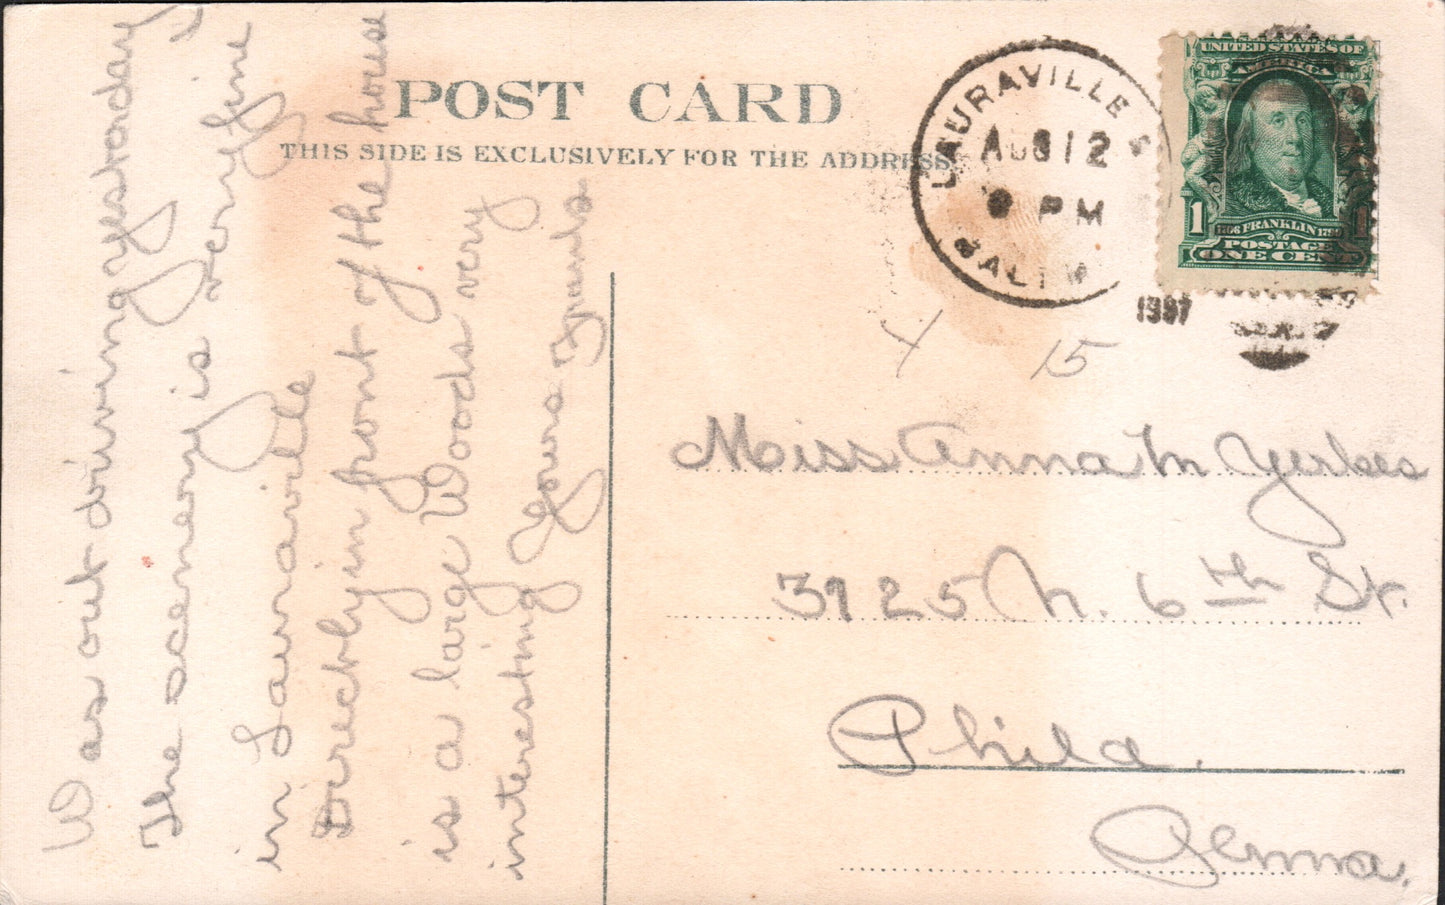 POST CARD
THIS SIDE IS EXCLUSIVELY FOR THE ADDRESS.
Was out driving yesterday
The scenery is very fine
in Lauraville
Directly in front of the house
is a large Woods very
interesting Yours Truly
LAURAVILLE S
AUG 12
PM
BALTIM
UNITED STATES OF
AMERICA
1 1
1706 FRANKLIN 1790
POSTAGE
ONE CENT
15
Miss Anna M Yerkes
3925 N. 6th St.
Phila.
Penna.